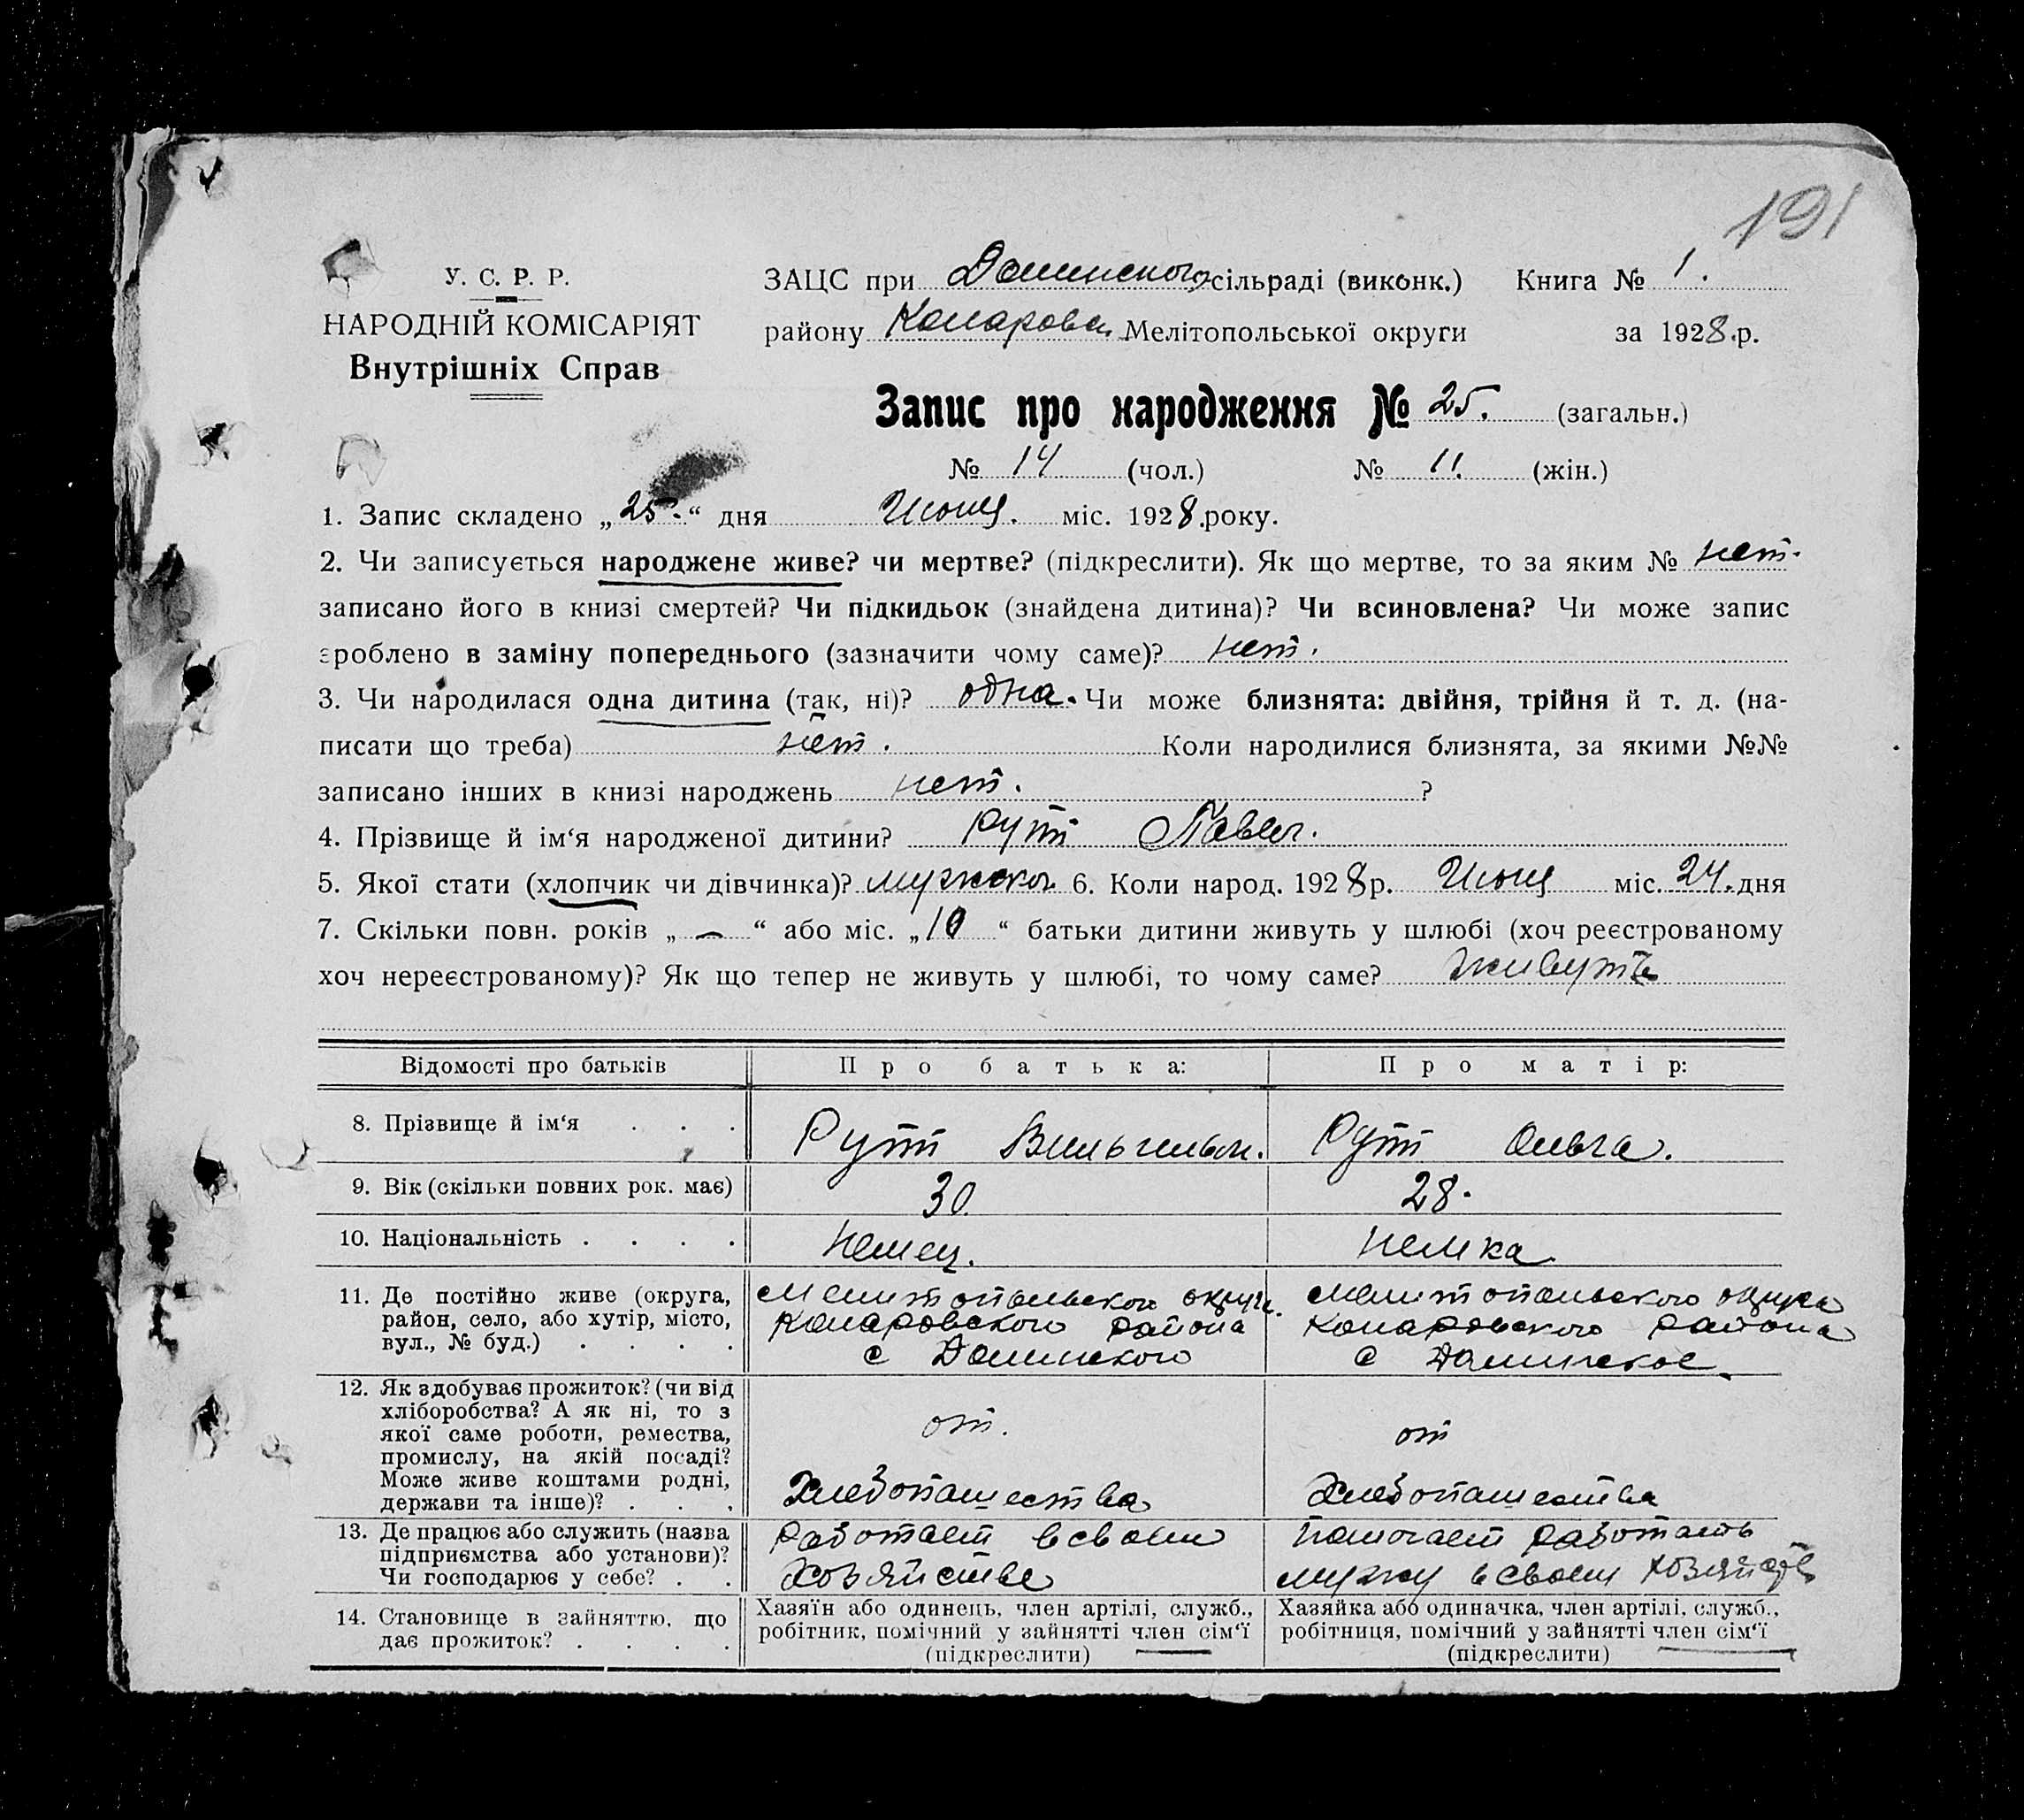 191
У. С. Р. Р.
НАРОДНІЙ КОМІСАРІЯТ
Внутрішніх Справ
ЗАЦС при Долинского сільраді (виконк.) Книга № 1.
району Комаровск. Мелітопольської округи за 1928.р.
Запис про народження № 25. (загальн.)
№ 14 (чол.) № 11. (жін.)
1. Запис складено „25.“ дня Июня. міс. 1928.року.
2. Чи записується народжене живе? чи мертве? (підкреслити). Як що мертве, то за яким № нет.
записано його в книзі смертей? Чи підкидьок (знайдена дитина)? Чи всиновлена? Чи може запис
зроблено в заміну попереднього (зазначити чому саме)? нет.
3. Чи народилася одна дитина (так, ні)? одна. Чи може близнята: двійня, трійня й т. д. (на-
писати що треба) нет. Коли народилися близнята, за якими №№
записано інших в книзі народжень нет. ?
4. Прізвище й ім‘я народженої дитини? Рутт Павел.
5. Якої стати (хлопчик чи дівчинка)? мужского 6. Коли народ. 1928р. Июня міс. 24. дня
7. Скільки повн. років „—“ або міс. „10“ батьки дитини живуть у шлюбі (хоч реєстрованому
хоч нереєстрованому)? Як що тепер не живуть у шлюбі, то чому саме? живуть
Відомості про батьків Про батька: Про матір:
8. Прізвище й ім‘я . . . Рутт Вильгельм. Рутт Ольга.
9. Вік (скільки повних рок. має) 30. 28.
10. Національність . . . . Немец. Немка
11. Де постійно живе (округа, район, село, або хутір, місто, вул., № буд.) . . . .
Мелитопольского округа. Комаровского района с Долинского
Мелитопольского округа Комаровского района с Долинское
12. Як здобуває прожиток? (чи від хліборобства? А як ні, то з якої саме роботи, ремества, промислу, на якій посаді? Може живе коштами родні, держави та інше)? . . .
от. Хлебопашества
от Хлебопашества
13. Де працює або служить (назва підприємства або установи)? Чи господарює у себе? . .
работает всвоем Хозяйстве
помогает работать мужу всвоем хозяйстве
14. Становище в зайняттю, що дає прожиток? . . . .
Хазяїн або одинець, член артілі, служб., робітник, помічний у зайнятті член сім‘ї (підкреслити)
Хазяйка або одиначка, член артілі, служб., робітниця, помічний у зайнятті член сім‘ї (підкреслити)